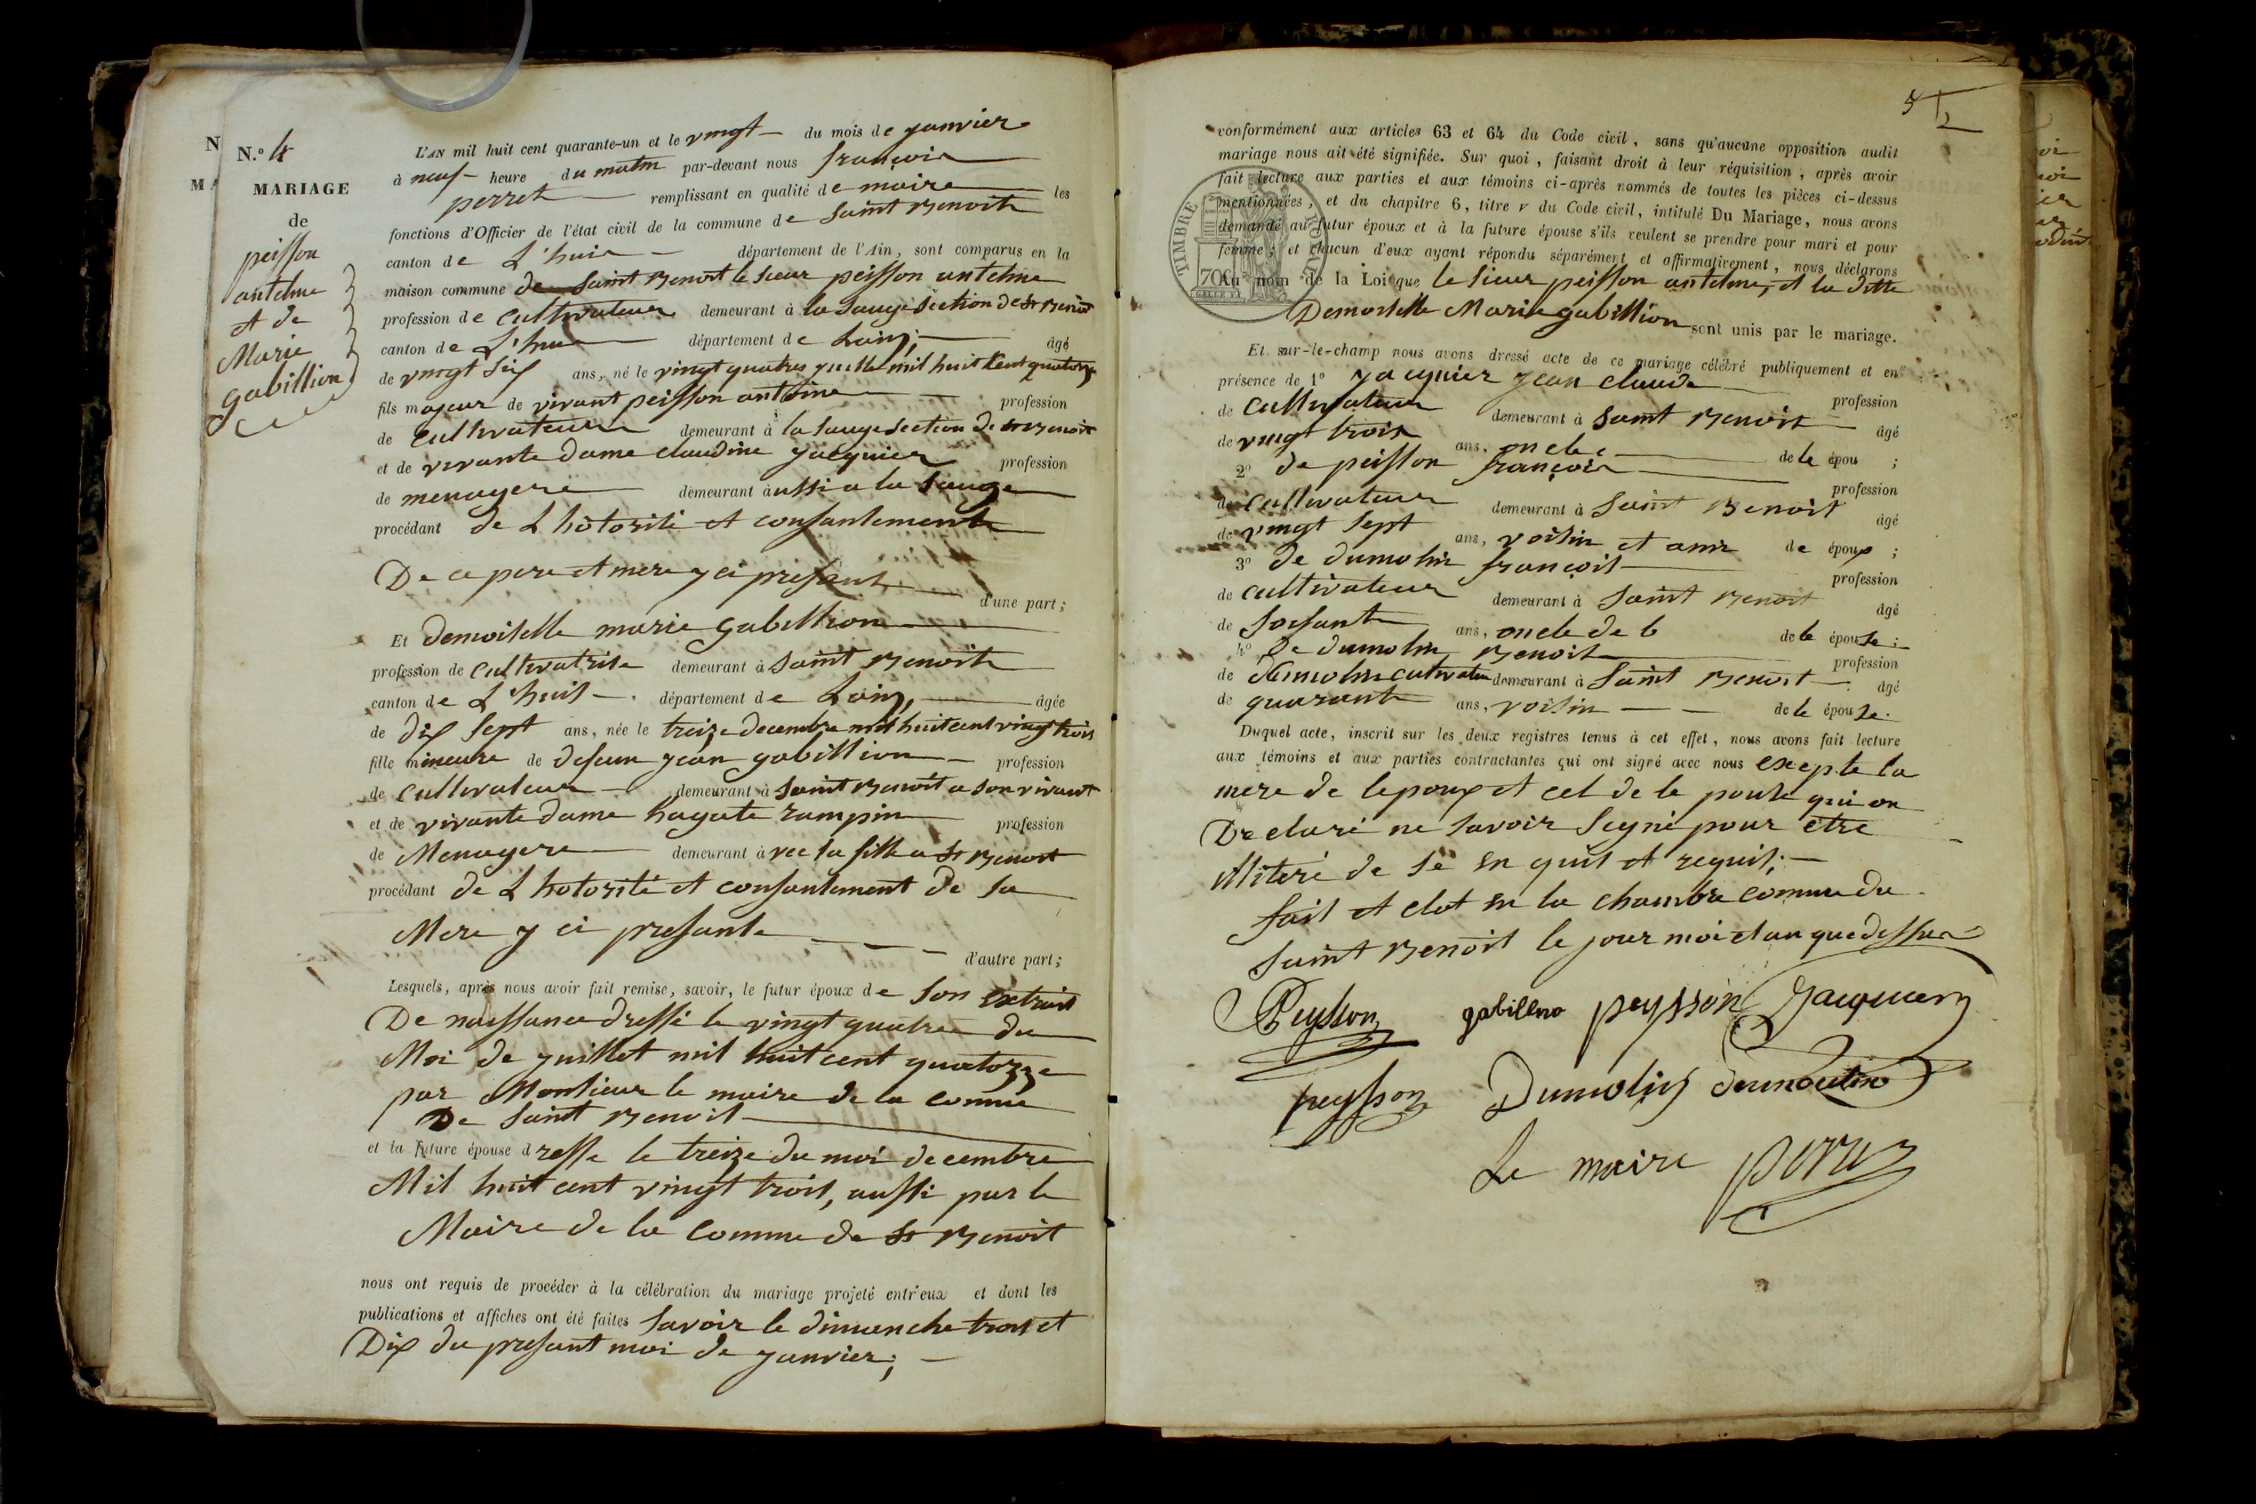 N
MA
N.o 4
MARIAGE
de
peisson
antelme
et de
Marie
gabillion
L'AN mil huit cent quarante-un et le vingt du mois de janvier
à neuf heure du matin par-devant nous françois
perret remplissant en qualité de maire les
fonctions d'Officier de l'état civil de la commune de Saint Benoit
canton de L'huis département de l'Ain, sont comparus en la
maison commune de Saint Benoit le sieur peisson antelme
profession de cultivateur demeurant à la Sauge section de St Benoit
canton de L'huis département de Lain, âgé
de vingt six ans, né le vingt quatres juillet mil huit cent quatorze
fils majeur de vivant peisson antoine profession
de cultivateur demeurant à la Sauge section de St Benoit
et de vivante dame claudine jacquier profession
de menagere demeurant àussi a la Sauge
procédant de L'hotorité et consantement
De ce pere et mere y ci présant d'une part;
Et demoiselle marie gabillion
profession de cultivatrise demeurant à Saint Benoit
canton de L'huis département de Lain, âgée
de dix sept ans, née le treize decembre mil huit cent vingt trois
fille mineure de defeun jean gabillion profession
de cultivateur demeurant à Saint Benoit a son vivant
et de vivante dame hagate rampin profession
de Menagere demeurant àvec sa fille a St Benoit
procédant de L'hotorité et consantement de sa
Mere y ci presante d'autre part;
Lesquels, après nous avoir fait remise, savoir, le futur époux de son extrait
De naissance dressé le vingt quatre du
Moi de juillet mil huit cent quatorze
par Monsieur le maire de la comme
De Saint Benoit
et la future épouse dresse le treize du moi decembre
Mil huit cent vingt trois, aussi par le
Maire de la comme de St Benoit
nous ont requis de procéder à la célébration du mariage projeté entr'eux et dont les
publications et affiches ont été faites savoir le dimanche trois et
Dix du presant moi de janvier;
5
conformément aux articles 63 et 64 du Code civil, sans qu'aucune opposition audit
mariage nous ait été signifiée. Sur quoi, faisant droit à leur réquisition, après avoir
fait lecture aux parties et aux témoins ci-après nommés de toutes les pièces ci-dessus
mentionnées, et du chapitre 6, titre v du Code civil, intitulé Du Mariage, nous avons
demandé au futur époux et à la future épouse s'ils veulent se prendre pour mari et pour
femme; et chacun d'eux ayant répondu séparément et affirmativement, nous déclarons
Au nom de la Loi que le sieur peisson antelme, et la ditte
Demoiselle Marie gabillion sont unis par le mariage.
TIMBRE ROYAL
70
Et sur-le-champ nous avons dressé acte de ce mariage célébré publiquement et en
présence de 1o jacquier jean claude profession
de cultivateur demeurant à Saint Benoit âgé
de vingt trois ans, oncle de le épou ;
2o de peisson françois profession
de cultivateur demeurant à Saint Benoit âgé
de vingt sept ans, voisin et ami de époux ;
3o de dumolin françois profession
de cultivateur demeurant à Saint Benoit âgé
de soisante ans, oncle de le de le épouse ;
4o De dumolin Benoit profession
de dumolin cultivateu demeurant à Saint Benoit âgé
de quarante ans, voisin de le épouse.
Duquel acte, inscrit sur les deux registres tenus à cet effet, nous avons fait lecture
aux témoins et aux parties contractantes qui ont signé avec nous exepte la
mere de lepoux et cel de le pouse qui on
De claré ne savoir Seyné pour etre
illiteré de se en quis et requis;
fait et clot en la chambre comme de
Saint Benoit le jour moi et an que dessus
Peysson gabillion peysson Jacquier
peysson Dumolin dumoulin
Le maire perret